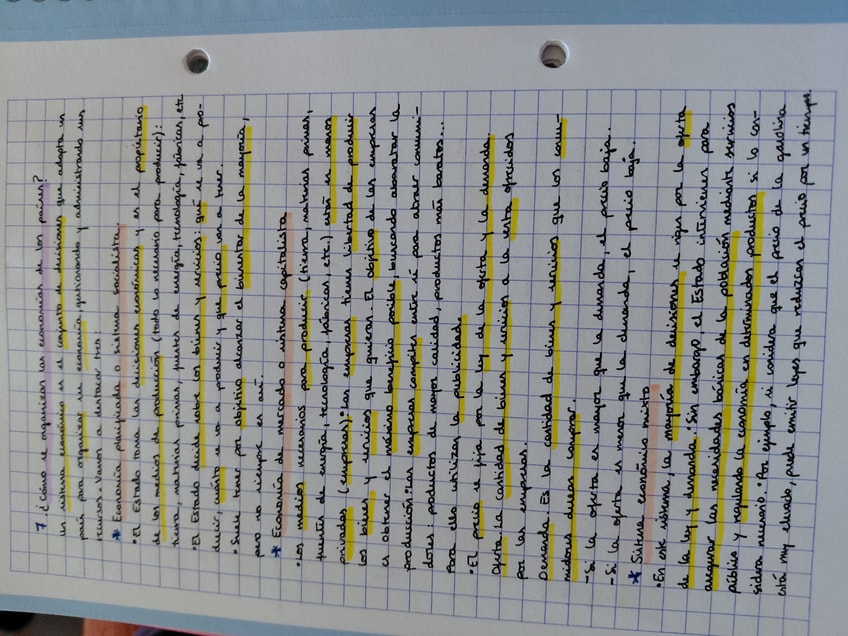 7 ¿Cómo se organizan las economías de los países?
Un sistema económico es el conjunto de decisiones que adopta un
país para organizar su economía, gestionando y administrando sus
recursos. Vamos a destacar tres:
* Economía planificada o sistema socialista.
• El Estado toma las decisiones económicas y es el propietario
de los medios de producción (todo lo necesario para producir):
tierra, materias primas, fuentes de energía, tecnología, fábricas, etc.
• El Estado decide sobre los bienes y servicios: qué se va a pro-
ducir, cuánto se va a producir y qué precio van a tener.
• Suele tener por objetivo alcanzar el bienestar de la mayoría,
pero no siempre es así.
* Economía de mercado o sistema capitalista
• Los medios necesarios para producir (tierra, materias primas,
fuentes de energía, tecnología, fábricas, etc.) están en manos
privadas (empresas). Las empresas tienen libertad de producir
los bienes y servicios que quieran. El objetivo de las empresas
es obtener el máximo beneficio posible, buscando abaratar la
producción. Las empresas compiten entre sí para atraer consumi-
dores: productos de mayor calidad, productos más baratos...
Para ello utilizan la publicidad.
• El precio se fija por la ley de la oferta y la demanda.
Oferta. La cantidad de bienes y servicios a la venta ofrecidos
por las empresas.
Demanda. Es la cantidad de bienes y servicios que los consu-
midores desean comprar.
- Si la oferta es mayor que la demanda, el precio baja.
- Si la oferta es menor que la demanda, el precio baja.
* Sistema económico mixto
• En este sistema, la mayoría de decisiones se rigen por la oferta
de la ley y demanda. Sin embargo, el Estado interviene para
asegurar las necesidades básicas de la población mediante servicios
públicos y regulando la economía en determinados productos si lo con-
sidera necesario. Por ejemplo, si considera que el precio de la gasolina
está muy elevado, puede emitir leyes que reduzcan el precio por un tiempo.